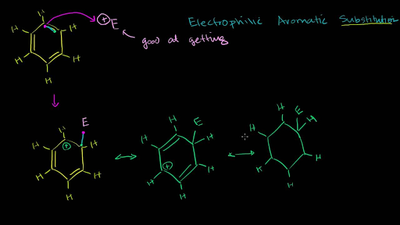 Electrophilic Aromatic Substitution
H H H H H H
+ E
good at getting
E
H H H H H H
+
E
H H H H H H
+
E
H H H H H H